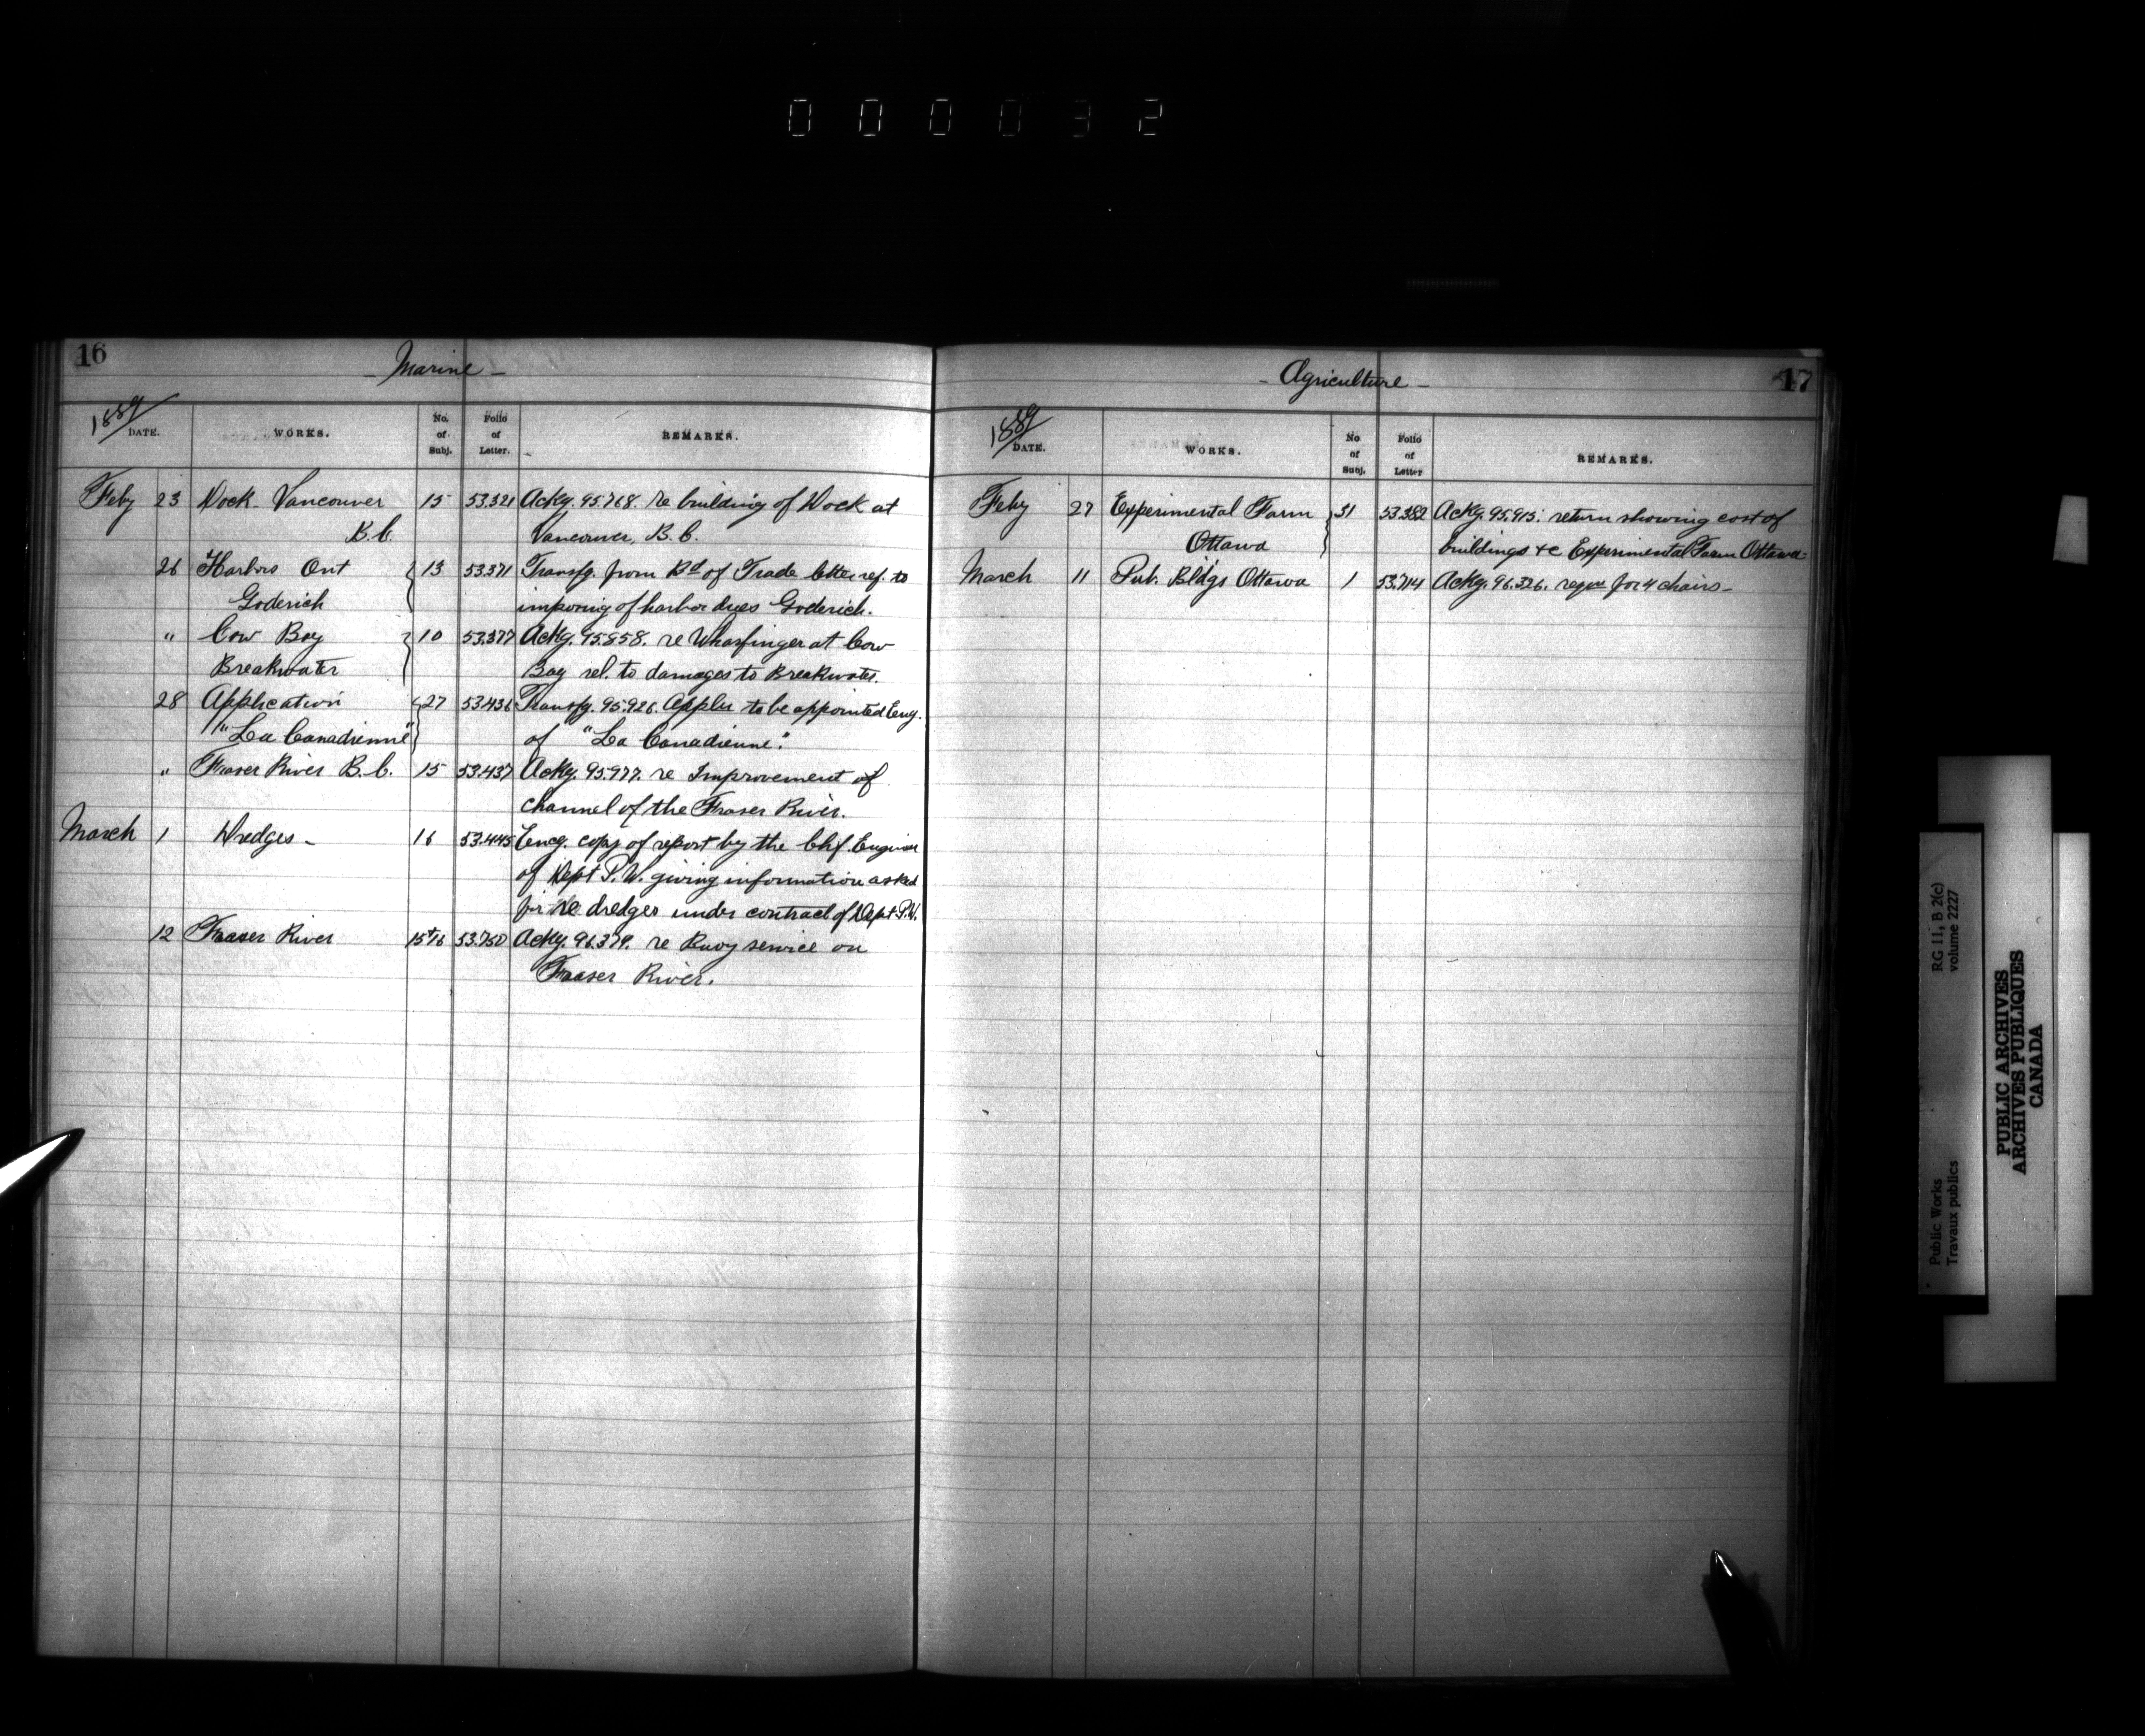 000032
16
- Marine -
1889
DATE. WORKS. No. of Subj. Folio of Letter. REMARKS.
Feby 23 Dock Vancouver 15 53.321 Ackg. 95.768. re building of Dock at
B.C. Vancouver, B.C.
26 Harbors Ont 13 53.371 Transfg. from Bd of Trade letter ref. to
Goderich imposing of harbor dues Goderich.
" Cow Bay 10 53.377 Ackg. 95.858. re Wharfinger at Cow
Breakwater Bay rel. to damages to Breakwater.
28 Application 27 53.436 Transfg. 95.926. Appln to be appointed Eng.
"La Canadienne" of "La Canadienne".
" Fraser River B.C. 15 53.437 Ackg. 95.977. re Improvement of
channel of the Fraser River.
March 1 Dredges - 16 53.445 Encg. copy of report by the Chf Engineer
of Dept P.W. giving information asked
for re dredges under contract of Dept P.W.
12 Fraser River 15+16 53.750 Ackg. 96.379. re Buoy service on
Fraser River.
17
- Agriculture -
1889
DATE. WORKS. No of Subj. Folio of Letter REMARKS.
Feby 27 Experimental Farm 31 53.382 Ackg. 95.915: return showing cost of
Ottawa buildings &c Experimental Farm Ottawa-
March 11 Pub. Bldgs Ottawa 1 53.714 Ackg. 96.326. reqn for 4 chairs -
Public Works
Travaux publics
RG 11, B 2(c)
volume 2227
PUBLIC ARCHIVES
ARCHIVES PUBLIQUES
CANADA